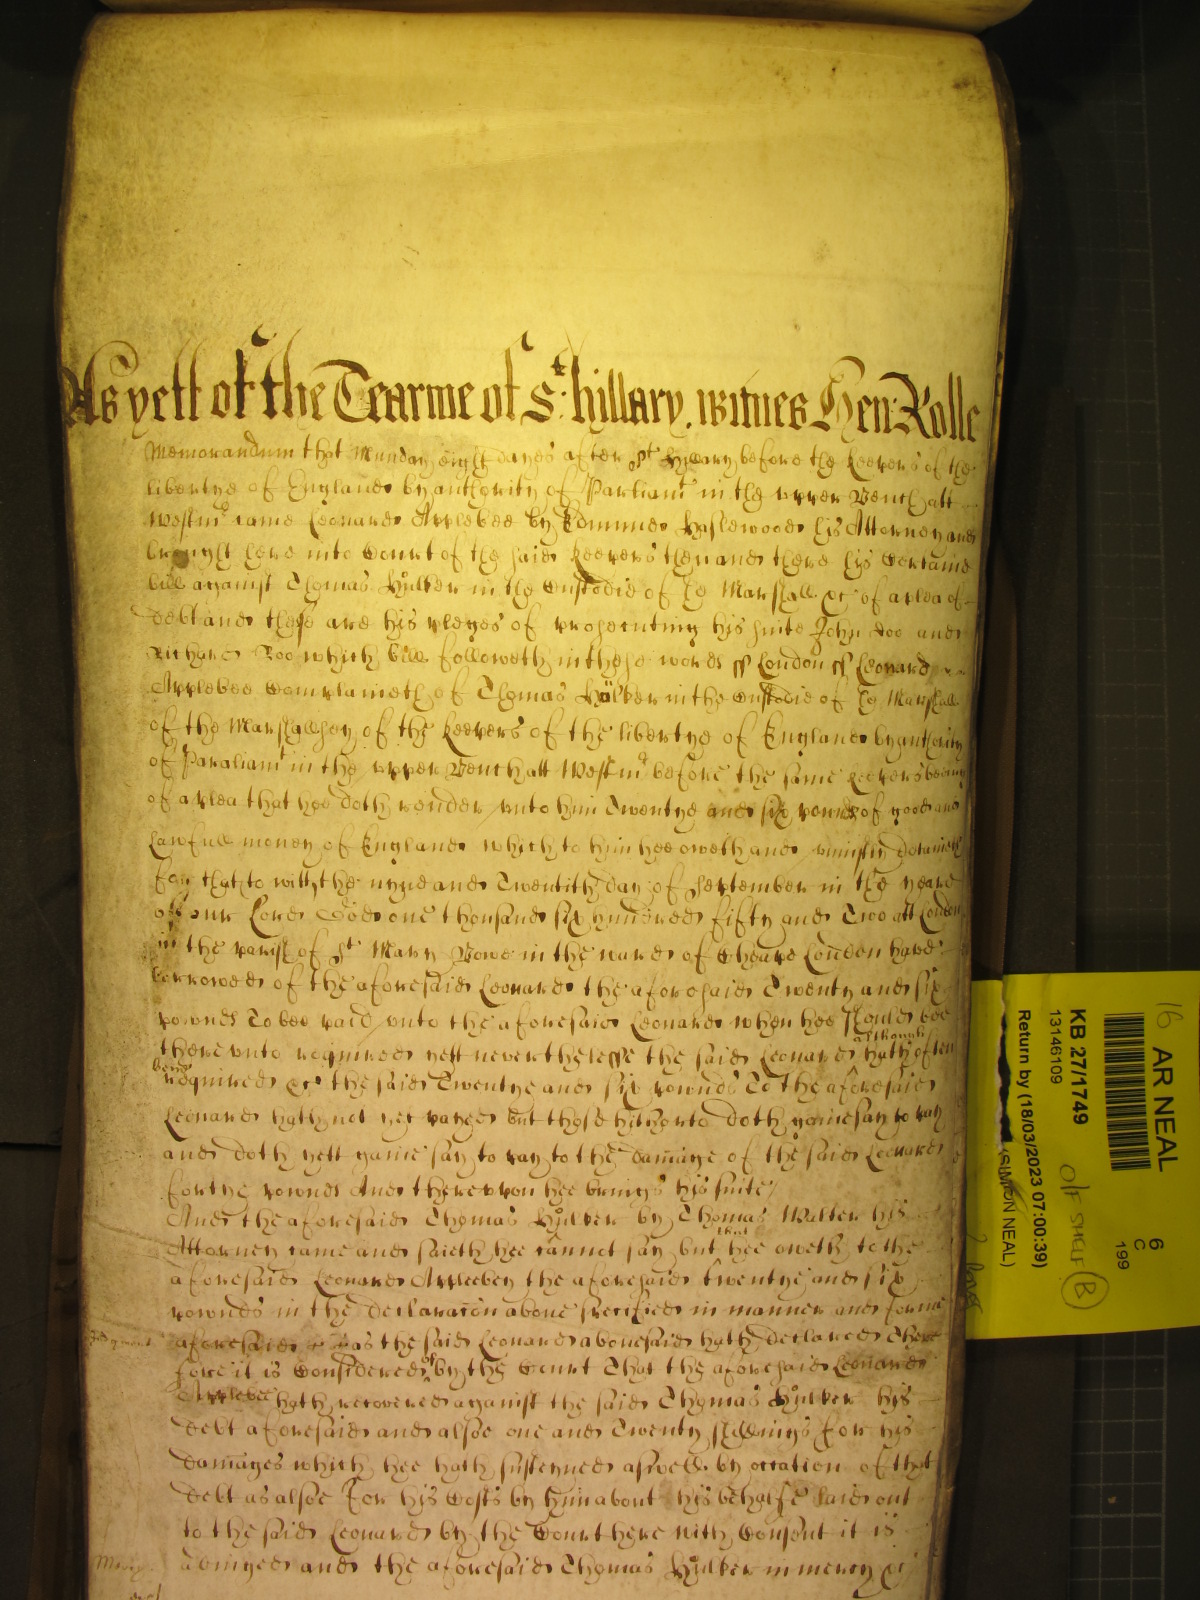 As yett of the Tearme of St: hillary. witnes Hen: Rolle
Memorandum that Munday eight dayes after St Hillary before the Keepers of the
libertye of England by authority of Parliamt in the upper Bench att
Westmr came Leonard Applebee by Edmund Haslewood his Attorney and
brought here into Court of the said Keepers then and there his Certaine
bill against Thomas Hulker in the Custodie of the Marshall &c of a plea of
debt and there are his pleges of prosecuting his suite John Doo and
Richard Roo which bill followeth in these words ss London ss Leonard
Applebee Complaineth of Thomas Hulker in the Custodie of the Marshall
of the Marshallsey of the Keepers of the libertye of England by authority
of Paraliamt in the upper Bench att Westmr before the same Keepers beeing
of a plea that hee doth render unto him Twentye and six pounds of good and
Lawfull money of England which to him hee oweth and uniustly detaineth
For that to witt the nyne and Twentith day of September in the yeare
of our Lord God one thousand six hundred fifty and Two att London
in the parish of St Mary Bowe in the ward of Cheape London hard
borrowed of the aforesaid Leonard the aforesaid Twenty and six
pownds To bee paid unto the aforesaid Leonard when hee should bee
there unto required yett neverthelesse the said Leonard although hath often
been required &c the said Twentye and six pownds To the aforesaid
Leonard hath not yet payed but those hitherto doth gainesay to pay
and doth yett gaine say to pay to the damage of the said Leonard
fortye pownds And thereupon hee brings his suite /
And the aforesaid Thomas Hulker by Thomas Walter his
Attorney came and saieth hee cannot say but that hee oweth to the
aforesaid Leonard Appleebey the aforesaid twentye and six
pownds in the declaracon above specified in manner and forme
aforesaid as the said Leonard abovesaid hath declared There
fore it is Considered of by the Court That the aforesaid Leonard
Applebee hath recovered against the said Thomas Hulker his
debt aforesaid and alsoe one and Twenty shillings for his
damages which hee hath susteyned aswell by occation of that
debt as alsoe For his Costs by him about his behalfe laid out
to the said Leonard by the Court here with Consent it is
adiudged and the aforesaid Thomas Hulker in mercy &c
Mercy
16
AR NEAL
KB 27/1749
13146109
Return by (18/03/2023 07:00:39)
(SIMON NEAL)
O/F SHELF
B
6
C
199